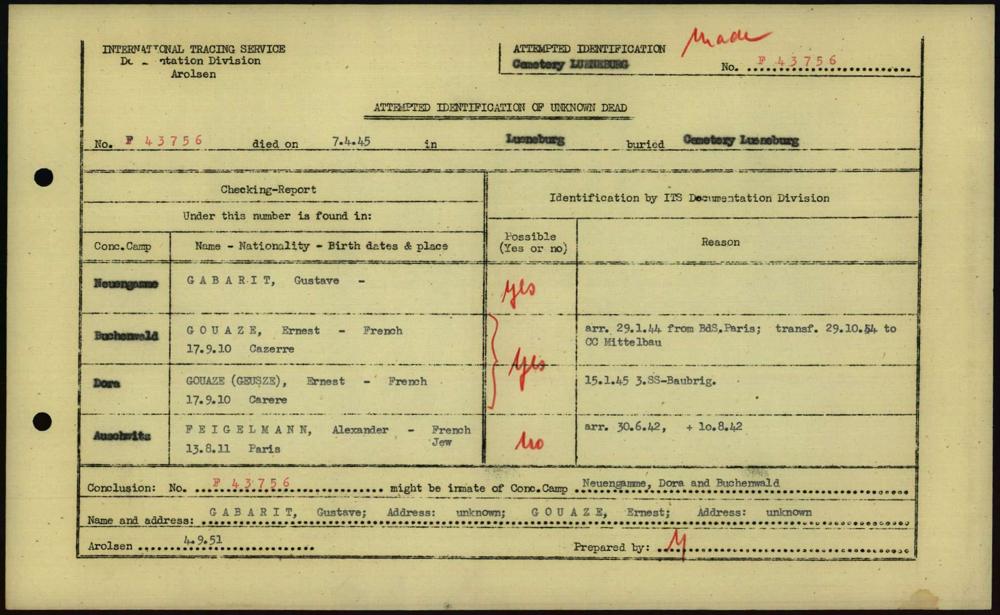 INTERNATIONAL TRACING SERVICE
Documentation Division
Arolsen
ATTEMPTED IDENTIFICATION
Cemetery LUENEBURG
made
No. F 43756
ATTEMPTED IDENTIFICATION OF UNKNOWN DEAD
No. F 43756 died on 7.4.45 in Lueneburg buried Cemetery Lueneburg
Checking-Report
Identification by ITS Documentation Division
Under this number is found in:
Conc.Camp Name - Nationality - Birth dates & place Possible (Yes or no) Reason
Neuengamme GABARIT, Gustave - yes
Buchenwald GOUAZE, Ernest - French arr. 29.1.44 from BdS.Paris; transf. 29.10.54 to
17.9.10 Cazerre CC Mittelbau
yes
Dora GOUAZE (GEUSZE), Ernest - French 15.1.45 3.SS-Baubrig.
17.9.10 Carere
Auschwitz FEIGELMANN, Alexander - French no arr. 30.6.42, + 10.8.42
Jew
13.8.11 Paris
Conclusion: No. F 43756 might be inmate of Conc.Camp Neuengamme, Dora and Buchenwald
Name and address: GABARIT, Gustave; Address: unknown; GOUAZE, Ernest; Address: unknown
Arolsen 4.9.51 Prepared by: